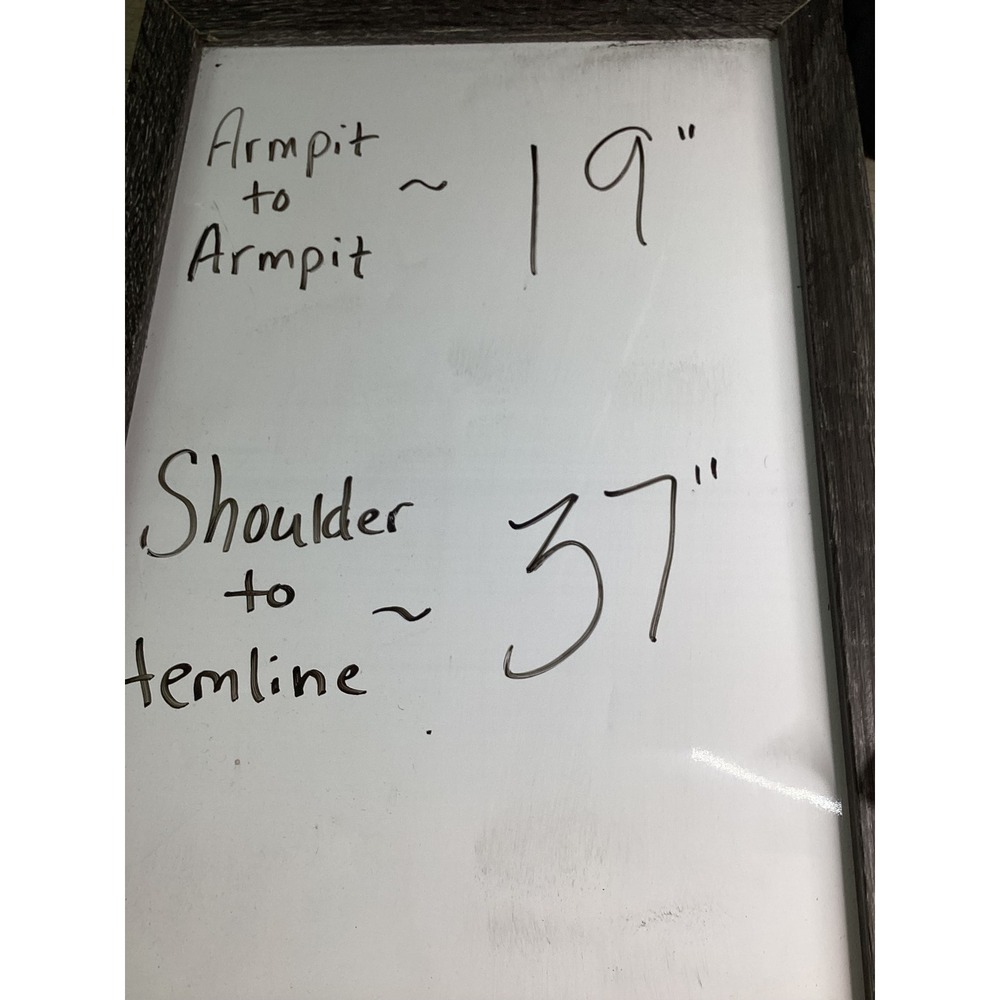 Armpit
to
Armpit
~ 19"
Shoulder
to
Hemline
~ 37"